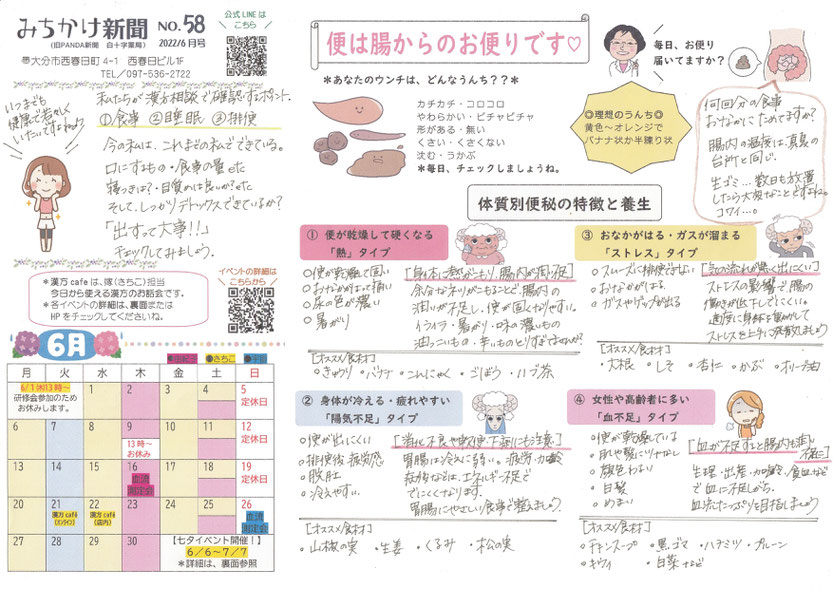 みちかけ新聞 NO.58
(旧PANDA新聞 白十字薬局) 2022/6月号
大分市西春日町4-1 西春日ビル1F
TEL/097-536-2722
公式LINEは
こちら
いつまでも
健康で若々しく
いたいですよね♪
私たちが漢方相談で確認するポイント.
①食事 ②睡眠 ③排便
今の私は、これまでの私でできている。
口にするもの・食事の量etc
寝つきは?・目覚めは良いか?etc
そして、しっかりデトックスできているか?
「出すって大事!!」
チェックしてみましょう。
*漢方cafeは、嫁(さちこ)担当
今日から使える漢方のお話会です。
*各イベントの詳細は、裏面または
HPをチェックしてくださいね。
イベントの詳細は
こちらから
6月
月 火 水 木 金 土 日
6/1(木)13時～
研修会参加のため
お休みします。
1 2 3 4 5
定休日
6 7 8 9 10 11 12
13時～
お休み
定休日
13 14 15 16 17 18 19
血流
測定会
定休日
20 21 22 23 24 25 26
漢方café
(オンライン)
漢方café
(店内)
血流
測定会
27 28 29 30
【七夕イベント開催!】
6/6～7/7
*詳細は、裏面参照
便は腸からのお便りです♡
毎日、お便り
届いてますか?
*あなたのウンチは、どんなうんち??*
カチカチ・コロコロ
やわらかい・ビチャビチャ
形がある・無い
くさい・くさくない
沈む・うかぶ
*毎日、チェックしましょうね。
◎理想のうんち◎
黄色～オレンジで
バナナ状か半練り状
何回分の食事
おなかにためてますか?
腸内の温度は、真夏の
台所と同じ.
生ゴミ…数日も放置
したら大変なことですよね。
コワイ…。
体質別便秘の特徴と養生
① 便が乾燥して硬くなる
「熱」タイプ
○便が乾燥して固い
○おなかがはって痛い
○尿の色が濃い
○暑がり
[身体に熱がこもり、腸内が潤い不足]
余分なネツがこもることで、腸内の
潤いが不足し、便が固くなりやすい。
イライラ・暑がり・味の濃いもの
油っこいもの・辛いものとりすぎてませんか?
[オススメ食材]
・きゅうり ・バナナ ・こんにゃく ・ごぼう ・ハブ茶
② 身体が冷える・疲れやすい
「陽気不足」タイプ
○便が出にくい
○排便後 疲労感
○脱肛
○冷えやすい.
[消化不良や軟便、下痢にも注意]
胃腸は冷えに弱い。疲労・加齢
エネルギー不足で
でにくくなります.
胃腸にやさしい食事で整えましょう.
[オススメ食材]
○山椒の実 ・生姜 ・くるみ ・松の実
③ おなかがはる・ガスが溜まる
「ストレス」タイプ
○スムーズに排便できない
○おなかがはる
○ガスやゲップが出る
[気の流れが悪く出にくい]
ストレスの影響で、腸の
働きが低下しでにくい。
適度に身体を動かして
ストレスを上手に発散しましょう
[オススメ食材]
・大根 ・しそ ・杏仁 ・かぶ ・オリーブ油
④ 女性や高齢者に多い
「血不足」タイプ
○便が乾燥している
○肌や髪にツヤなし
○顔色わるい
○白髪
○めまい
[血が不足すると腸内も潤い不足に]
生理・出産・加齢・貧血など
で血に不足しがち.
血流たっぷりを目指しましょう
[オススメ食材]
○チキンスープ ・黒ゴマ ・ハチミツ ・プルーン
○キウイ ・白菜 など